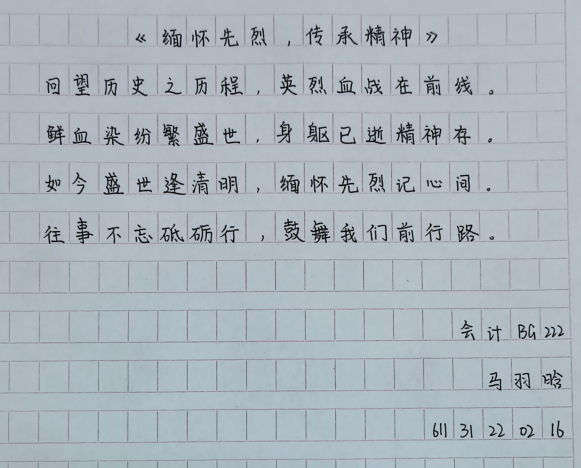 《缅怀先烈，传承精神》
回望历史之历程，英烈血战在前线。
鲜血染纷繁盛世，身躯已逝精神存。
如今盛世逢清明，缅怀先烈记心间。
往事不忘砥砺行，鼓舞我们前行路。
会计BG222
马羽晗
611 31 22 02 16